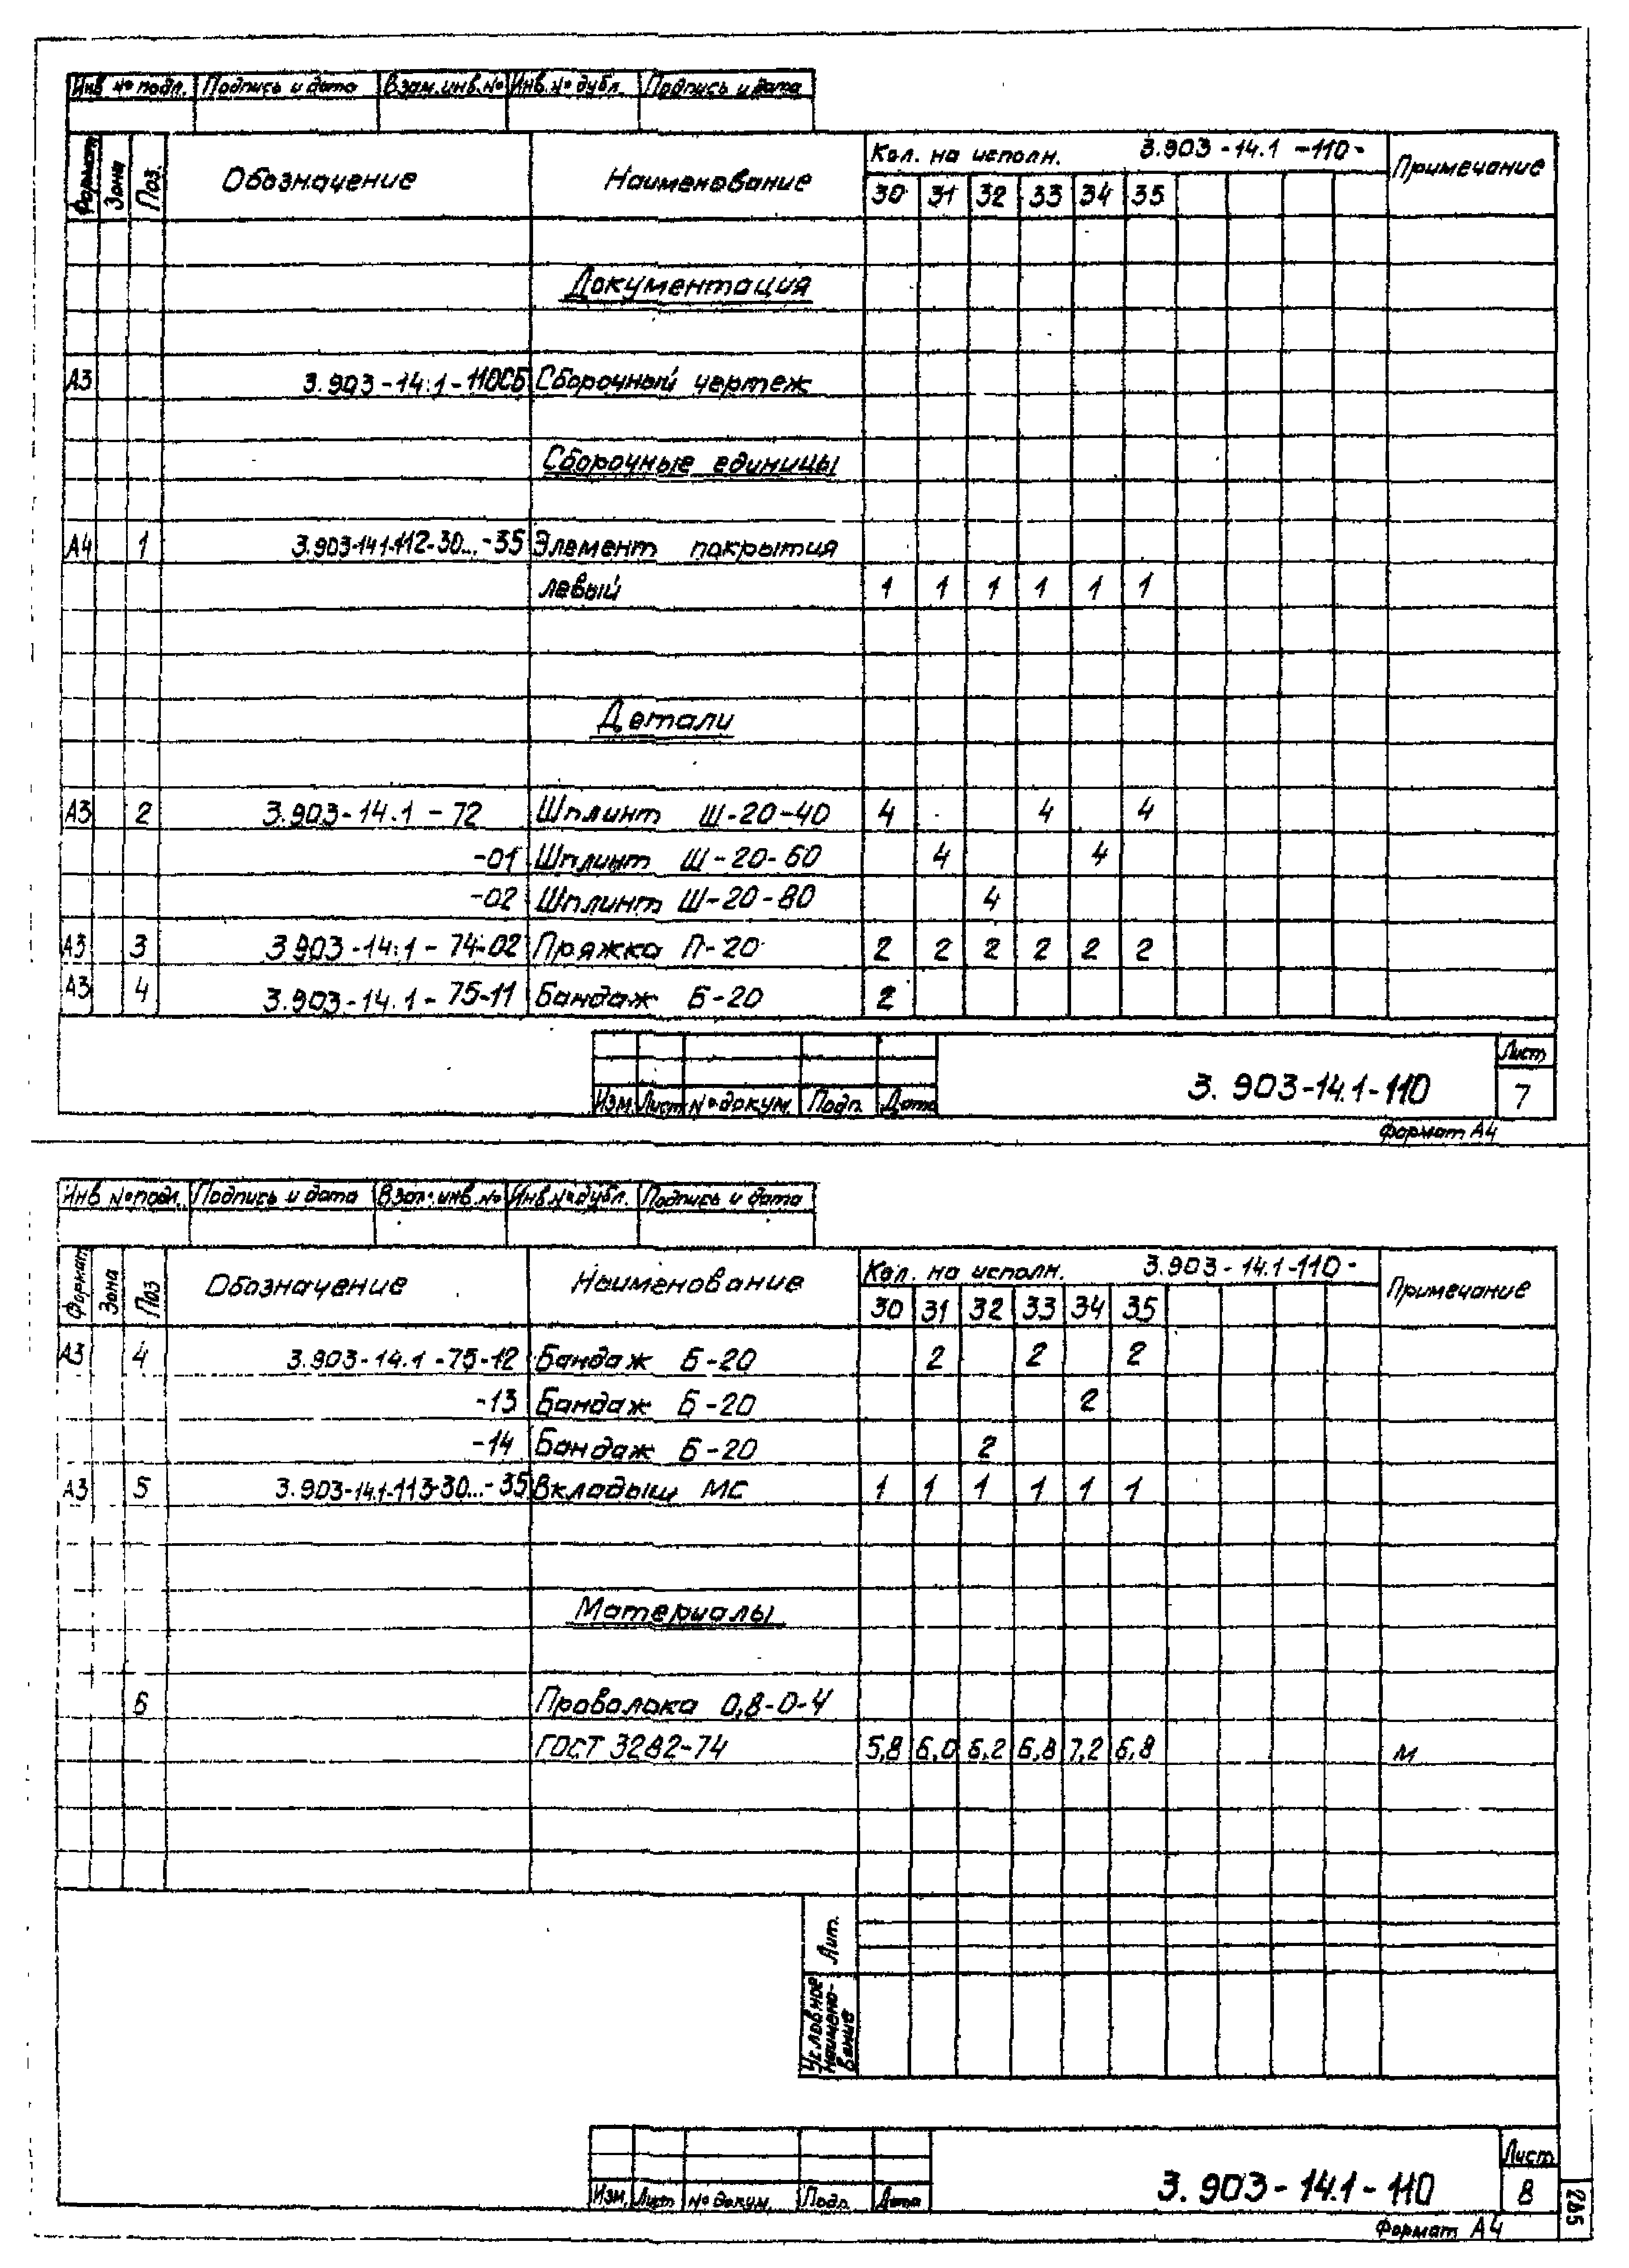 Инв № подл. Подпись и дата Взам.инв.№ Инв.№ дубл. Подпись и дата
Формат Зона Поз. Обозначение Наименование Кол. на исполн. 3.903-14.1-110- Примечание
30 31 32 33 34 35
Документация
А3 3.903-14.1-110СБ Сборочный чертеж
Сборочные единицы
А4 1 3.903-14.1-112-30...-35 Элемент покрытия
левый 1 1 1 1 1 1
Детали
А3 2 3.903-14.1-72 Шплинт Ш-20-40 4 4 4
-01 Шплинт Ш-20-60 4 4
-02 Шплинт Ш-20-80 4
А3 3 3.903-14.1-74-02 Пряжка П-20 2 2 2 2 2 2
А3 4 3.903-14.1-75-11 Бандаж Б-20 2
Изм. Лист № докум. Подп. Дата 3.903-14.1-110 Лист 7
Формат А4
Инв № подл. Подпись и дата Взам.инв.№ Инв.№ дубл. Подпись и дата
Формат Зона Поз Обозначение Наименование Кол. на исполн. 3.903-14.1-110- Примечание
30 31 32 33 34 35
А3 4 3.903-14.1-75-12 Бандаж Б-20 2 2 2
-13 Бандаж Б-20 2
-14 Бандаж Б-20 2
А3 5 3.903-14.1-113-30...-35 Вкладыш МС 1 1 1 1 1 1
Материалы
6 Проволока 0,8-О-Ч
ГОСТ 3282-74 5,8 6,0 6,2 6,8 7,2 6,8 м
Лит.
Условное наимено-
вание
Изм. Лист № докум. Подп. Дата 3.903-14.1-110 Лист 8
Формат А4
285